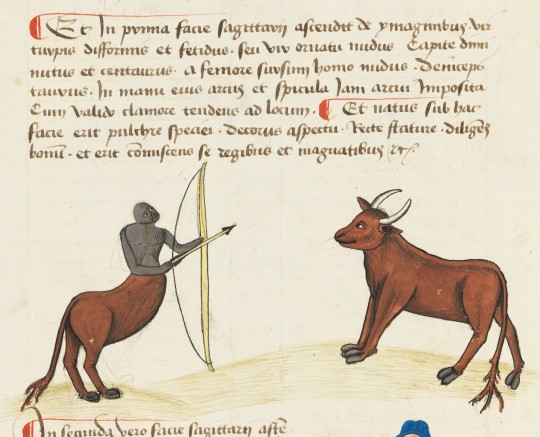 Et In prima facie sagittarii ascendit de ymaginibus vir
turpis difformis et fetidus. seu vir ornatu nudus Capite dimi
nutus et centaurus. A femore sursum homo nudus.
taurus. In manu eius arcus et spicula Iam arcui Imposita
Cum valido clamore tendens ad locum. Et natus sub hac
facie erit pulchre speciei. decorus aspectu. Recte stature. diligens
bonum. et erit commiscens se regibus et magnatibus etc.
In secunda vero facie sagittarii